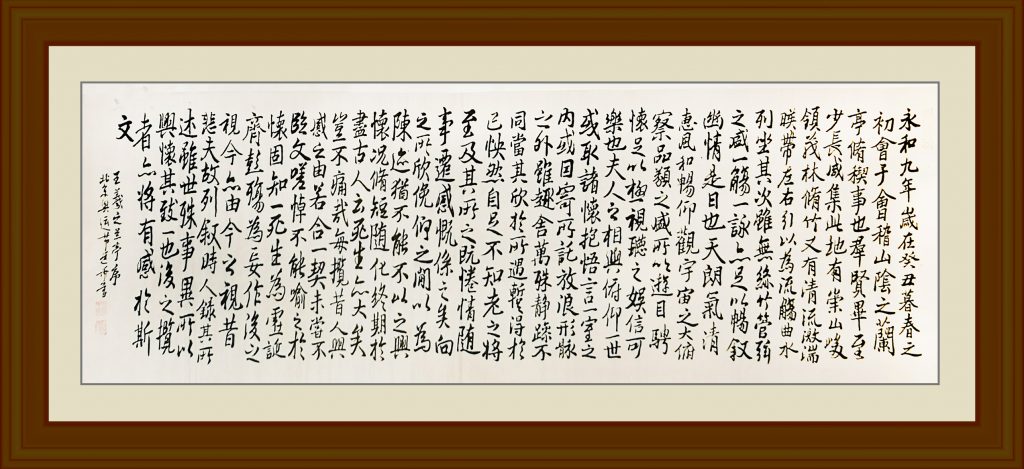 永和九年歲在癸丑暮春之
初會于會稽山陰之蘭
亭脩稧事也羣賢畢至
少長咸集此地有崇山峻
領茂林脩竹又有清流激湍
暎帶左右引以為流觴曲水
列坐其次雖無絲竹管弦
之盛一觴一詠亦足以暢叙
幽情是日也天朗氣清
惠風和暢仰觀宇宙之大俯
察品類之盛所以遊目騁
懷足以極視聽之娛信可
樂也夫人之相與俯仰一世
或取諸懷抱悟言一室之
內或因寄所託放浪形骸
之外雖趣舍萬殊靜躁不
同當其欣於所遇暫得於
己怏然自足不知老之將
至及其所之既惓情隨
事遷感慨係之矣向
之所欣俛仰之閒以為
陳迹猶不能不以之興
懷況脩短隨化終期於
盡古人云死生亦大矣
豈不痛哉每攬昔人興
感之由若合一契未嘗不
臨文嗟悼不能喻之於
懷固知一死生為虛誕
齊彭殤為妄作後之
視今亦由今之視昔
悲夫故列叙時人錄其所
述雖世殊事異所以
興懷其致一也後之攬
者亦將有感於斯
文
王羲之蘭亭序
北京奧運書